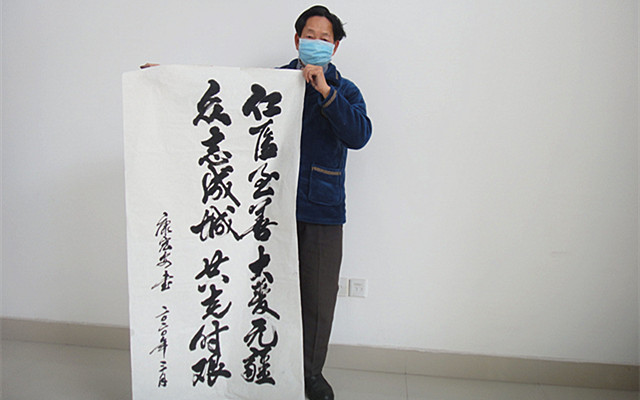 仁医至善 大爱无疆
众志成城 共克时艰
书 二〇二〇年二月